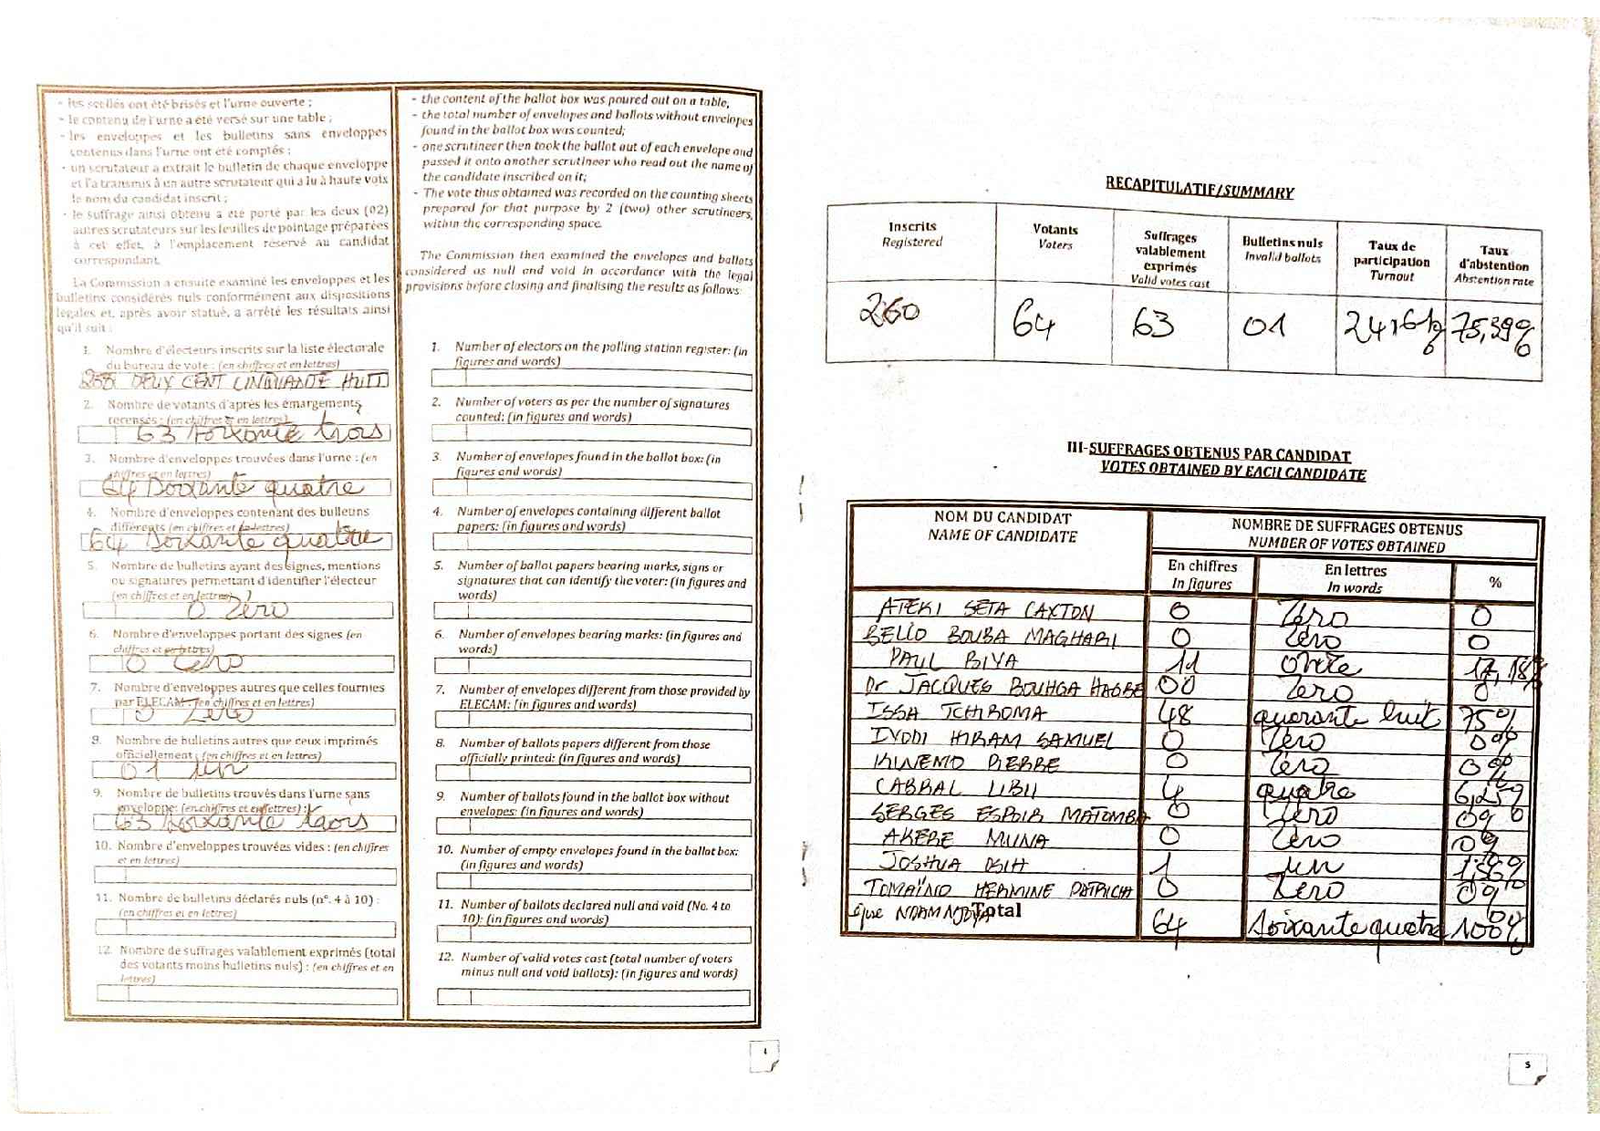 - les scellés ont été brisés et l'urne ouverte ;
- le contenu de l'urne a été versé sur une table ;
- les enveloppes et les bulletins sans enveloppes
contenus dans l'urne ont été comptés ;
- un scrutateur a extrait le bulletin de chaque enveloppe
et l'a transmis à un autre scrutateur qui a lu à haute voix
le nom du candidat inscrit ;
- le suffrage ainsi obtenu a été porté par les deux (02)
autres scrutateurs sur les feuilles de pointage préparées
à cet effet, à l'emplacement réservé au candidat
correspondant.
La Commission a ensuite examiné les enveloppes et les
bulletins considérés nuls conformément aux dispositions
légales et, après avoir statué, a arrêté les résultats ainsi
qu'il suit :
1. Nombre d'électeurs inscrits sur la liste électorale
du bureau de vote : (en chiffres et en lettres)
258 DEUX CENT CINQUANTE HUIT
2. Nombre de votants d'après les émargements
recensés : (en chiffres et en lettres)
63 soixante trois
3. Nombre d'enveloppes trouvées dans l'urne : (en
chiffres et en lettres)
64 Soixante quatre
4. Nombre d'enveloppes contenant des bulletins
différents (en chiffres et en lettres)
64 Soixante quatre
5. Nombre de bulletins ayant des signes, mentions
ou signatures permettant d'identifier l'électeur
(en chiffres et en lettres)
0 Zéro
6. Nombre d'enveloppes portant des signes (en
chiffres et en lettres)
0 Zéro
7. Nombre d'enveloppes autres que celles fournies
par ELECAM : (en chiffres et en lettres)
0 Zéro
8. Nombre de bulletins autres que ceux imprimés
officiellement : (en chiffres et en lettres)
01 un
9. Nombre de bulletins trouvés dans l'urne sans
enveloppe: (en chiffres et en lettres) :
63 soixante trois
10. Nombre d'enveloppes trouvées vides : (en chiffres
et en lettres)
11. Nombre de bulletins déclarés nuls (n°. 4 à 10) :
(en chiffres et en lettres)
12. Nombre de suffrages valablement exprimés (total
des votants moins bulletins nuls) : (en chiffres et en
lettres)
- the content of the ballot box was poured out on a table,
- the total number of envelopes and ballots without envelopes
found in the ballot box was counted;
- one scrutineer then took the ballot out of each envelope and
passed it onto another scrutineer who read out the name of
the candidate inscribed on it;
- The vote thus obtained was recorded on the counting sheets
prepared for that purpose by 2 (two) other scrutineers,
within the corresponding space.
The Commission then examined the envelopes and ballots
considered as null and void in accordance with the legal
provisions before closing and finalising the results as follows:
1. Number of electors on the polling station register: (in
figures and words)
2. Number of voters as per the number of signatures
counted: (in figures and words)
3. Number of envelopes found in the ballot box: (in
figures and words)
4. Number of envelopes containing different ballot
papers: (in figures and words)
5. Number of ballot papers bearing marks, signs or
signatures that can identify the voter: (in figures and
words)
6. Number of envelopes bearing marks: (in figures and
words)
7. Number of envelopes different from those provided by
ELECAM: (in figures and words)
8. Number of ballots papers different from those
officially printed: (in figures and words)
9. Number of ballots found in the ballot box without
envelopes: (in figures and words)
10. Number of empty envelopes found in the ballot box:
(in figures and words)
11. Number of ballots declared null and void (No. 4 to
10): (in figures and words)
12. Number of valid votes cast (total number of voters
minus null and void ballots): (in figures and words)
4
RECAPITULATIF/SUMMARY
Inscrits Registered Votants Voters Suffrages valablement exprimés Valid votes cast Bulletins nuls Invalid ballots Taux de participation Turnout Taux d'abstention Abstention rate
260 64 63 01 24,61% 75,39%
III-SUFFRAGES OBTENUS PAR CANDIDAT
VOTES OBTAINED BY EACH CANDIDATE
NOM DU CANDIDAT NOMBRE DE SUFFRAGES OBTENUS
NAME OF CANDIDATE NUMBER OF VOTES OBTAINED
En chiffres En lettres %
In figures In words
ATEKI SETA CAXTON 0 Zéro 0
BELLO BOUBA MAGHARI 0 Zéro 0
PAUL BIYA 11 onze 17,18%
Dr JACQUES BOUHGA HAGBE 00 Zéro 0
ISSA TCHIROMA 48 quarante huit 75%
IYODI HIRAM SAMUEL 0 Zéro 0%
KWEMO PIERRE 0 Zéro 0%
CABRAL LIBII 4 quatre 6,25%
SERGES ESPOIR MATOMBA 0 Zéro 0%
AKERE MUNA 0 Zéro 0%
JOSHUA OSIH 1 un 1,56%
TOMAÏNO HERMINE PATRICIA 0 Zéro 0%
épse NDAM NJOYA Total 64 Soixante quatre 100%
5